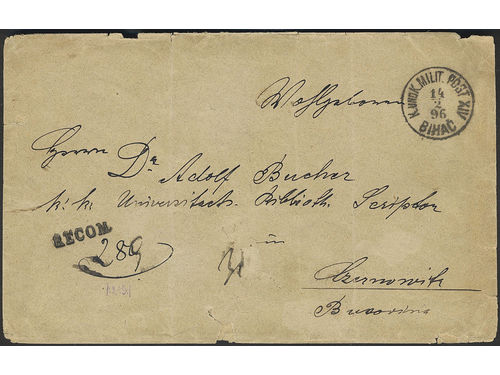 K. UND K. MILIT. POST XIV
14
2
96
BIHAČ
Wohlgeboren
Herrn Dr Adolf Bucher
k. k. Universitäts-Biblioth. Scriptor
RECOM.
289
in
Czernowitz